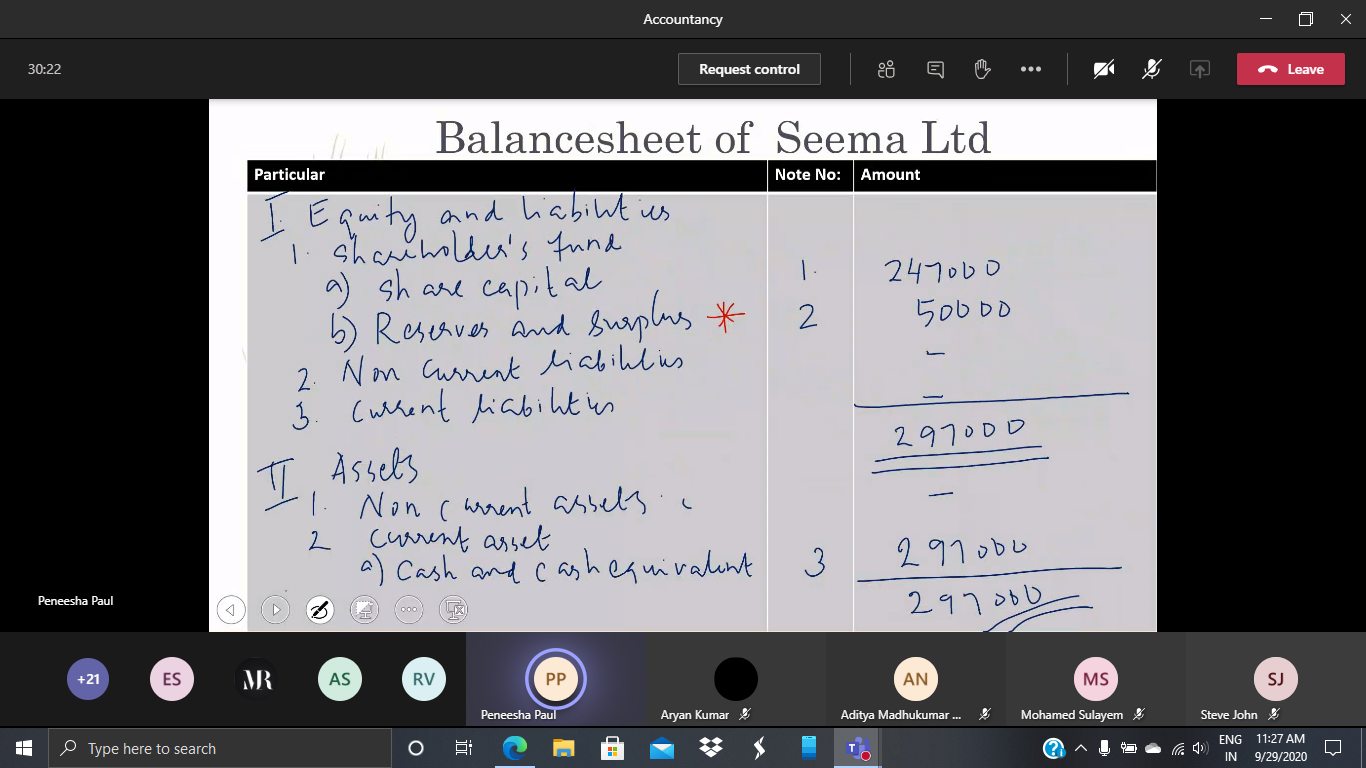 Accountancy
30:22
Request control
Leave
Balancesheet of Seema Ltd
Particular Note No: Amount
I. Equity and liabilities
1. Shareholder's fund
a) Share capital 1. 247000
b) Reserves and Surplus * 2 50000
2. Non current liabilities -
3. Current liabilities -
297000
II Assets
1. Non current assets -
2 Current asset
a) Cash and cash equivalent 3 297000
297000
Peneesha Paul
+21
ES
MR
AS
RV
PP
AN
MS
SJ
Peneesha Paul
Aryan Kumar
Aditya Madhukumar ...
Mohamed Sulayem
Steve John
Type here to search
ENG
IN
11:27 AM
9/29/2020